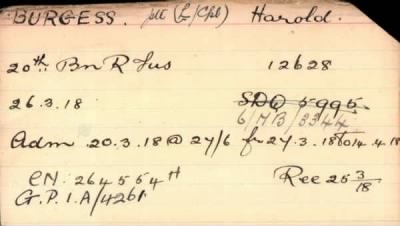 BURGESS. Ptl (L/Cpl) Harold.
20th. Bn R Fus 12628
26.3.18 SDQ 5995.
6/MB/3344
Adm. 20.3.18 @ 24/6 fr 24.3.18 to 14.4.18
CN. 264554 H Rec 25 3/18
G.P.I.A/4261